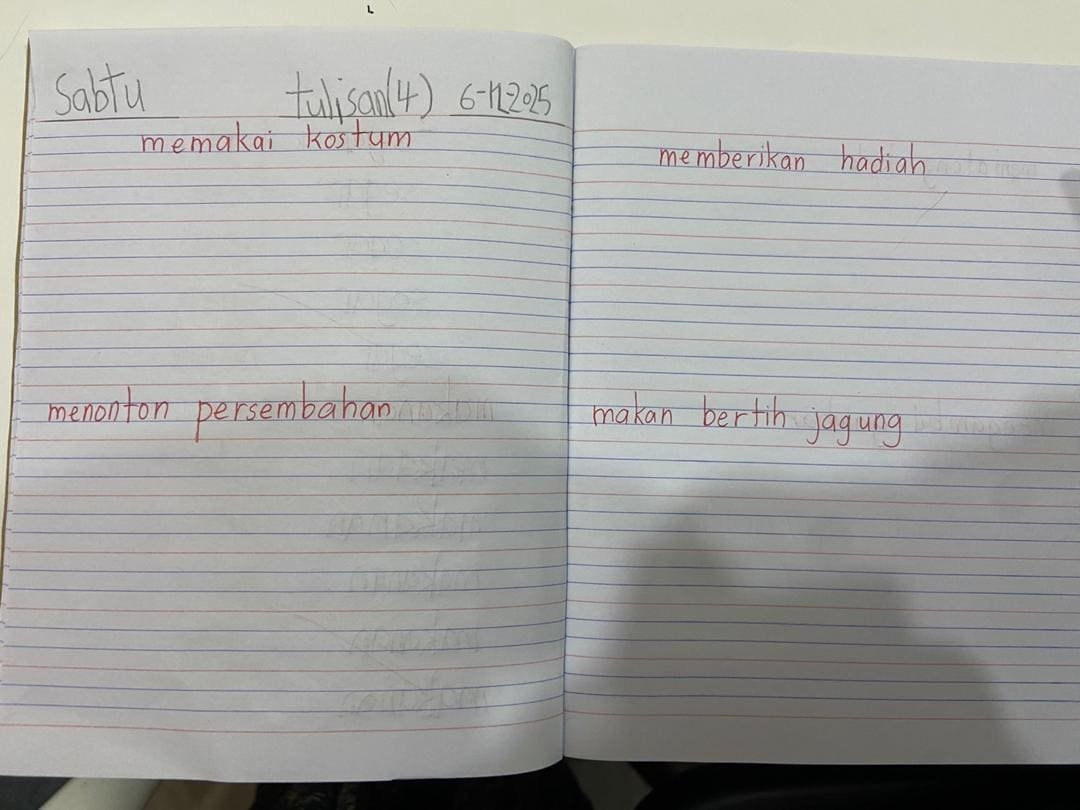 Sabtu tulisan(4) 6-12-2025
memakai kostum
menonton persembahan
memberikan hadiah
makan bertih jagung